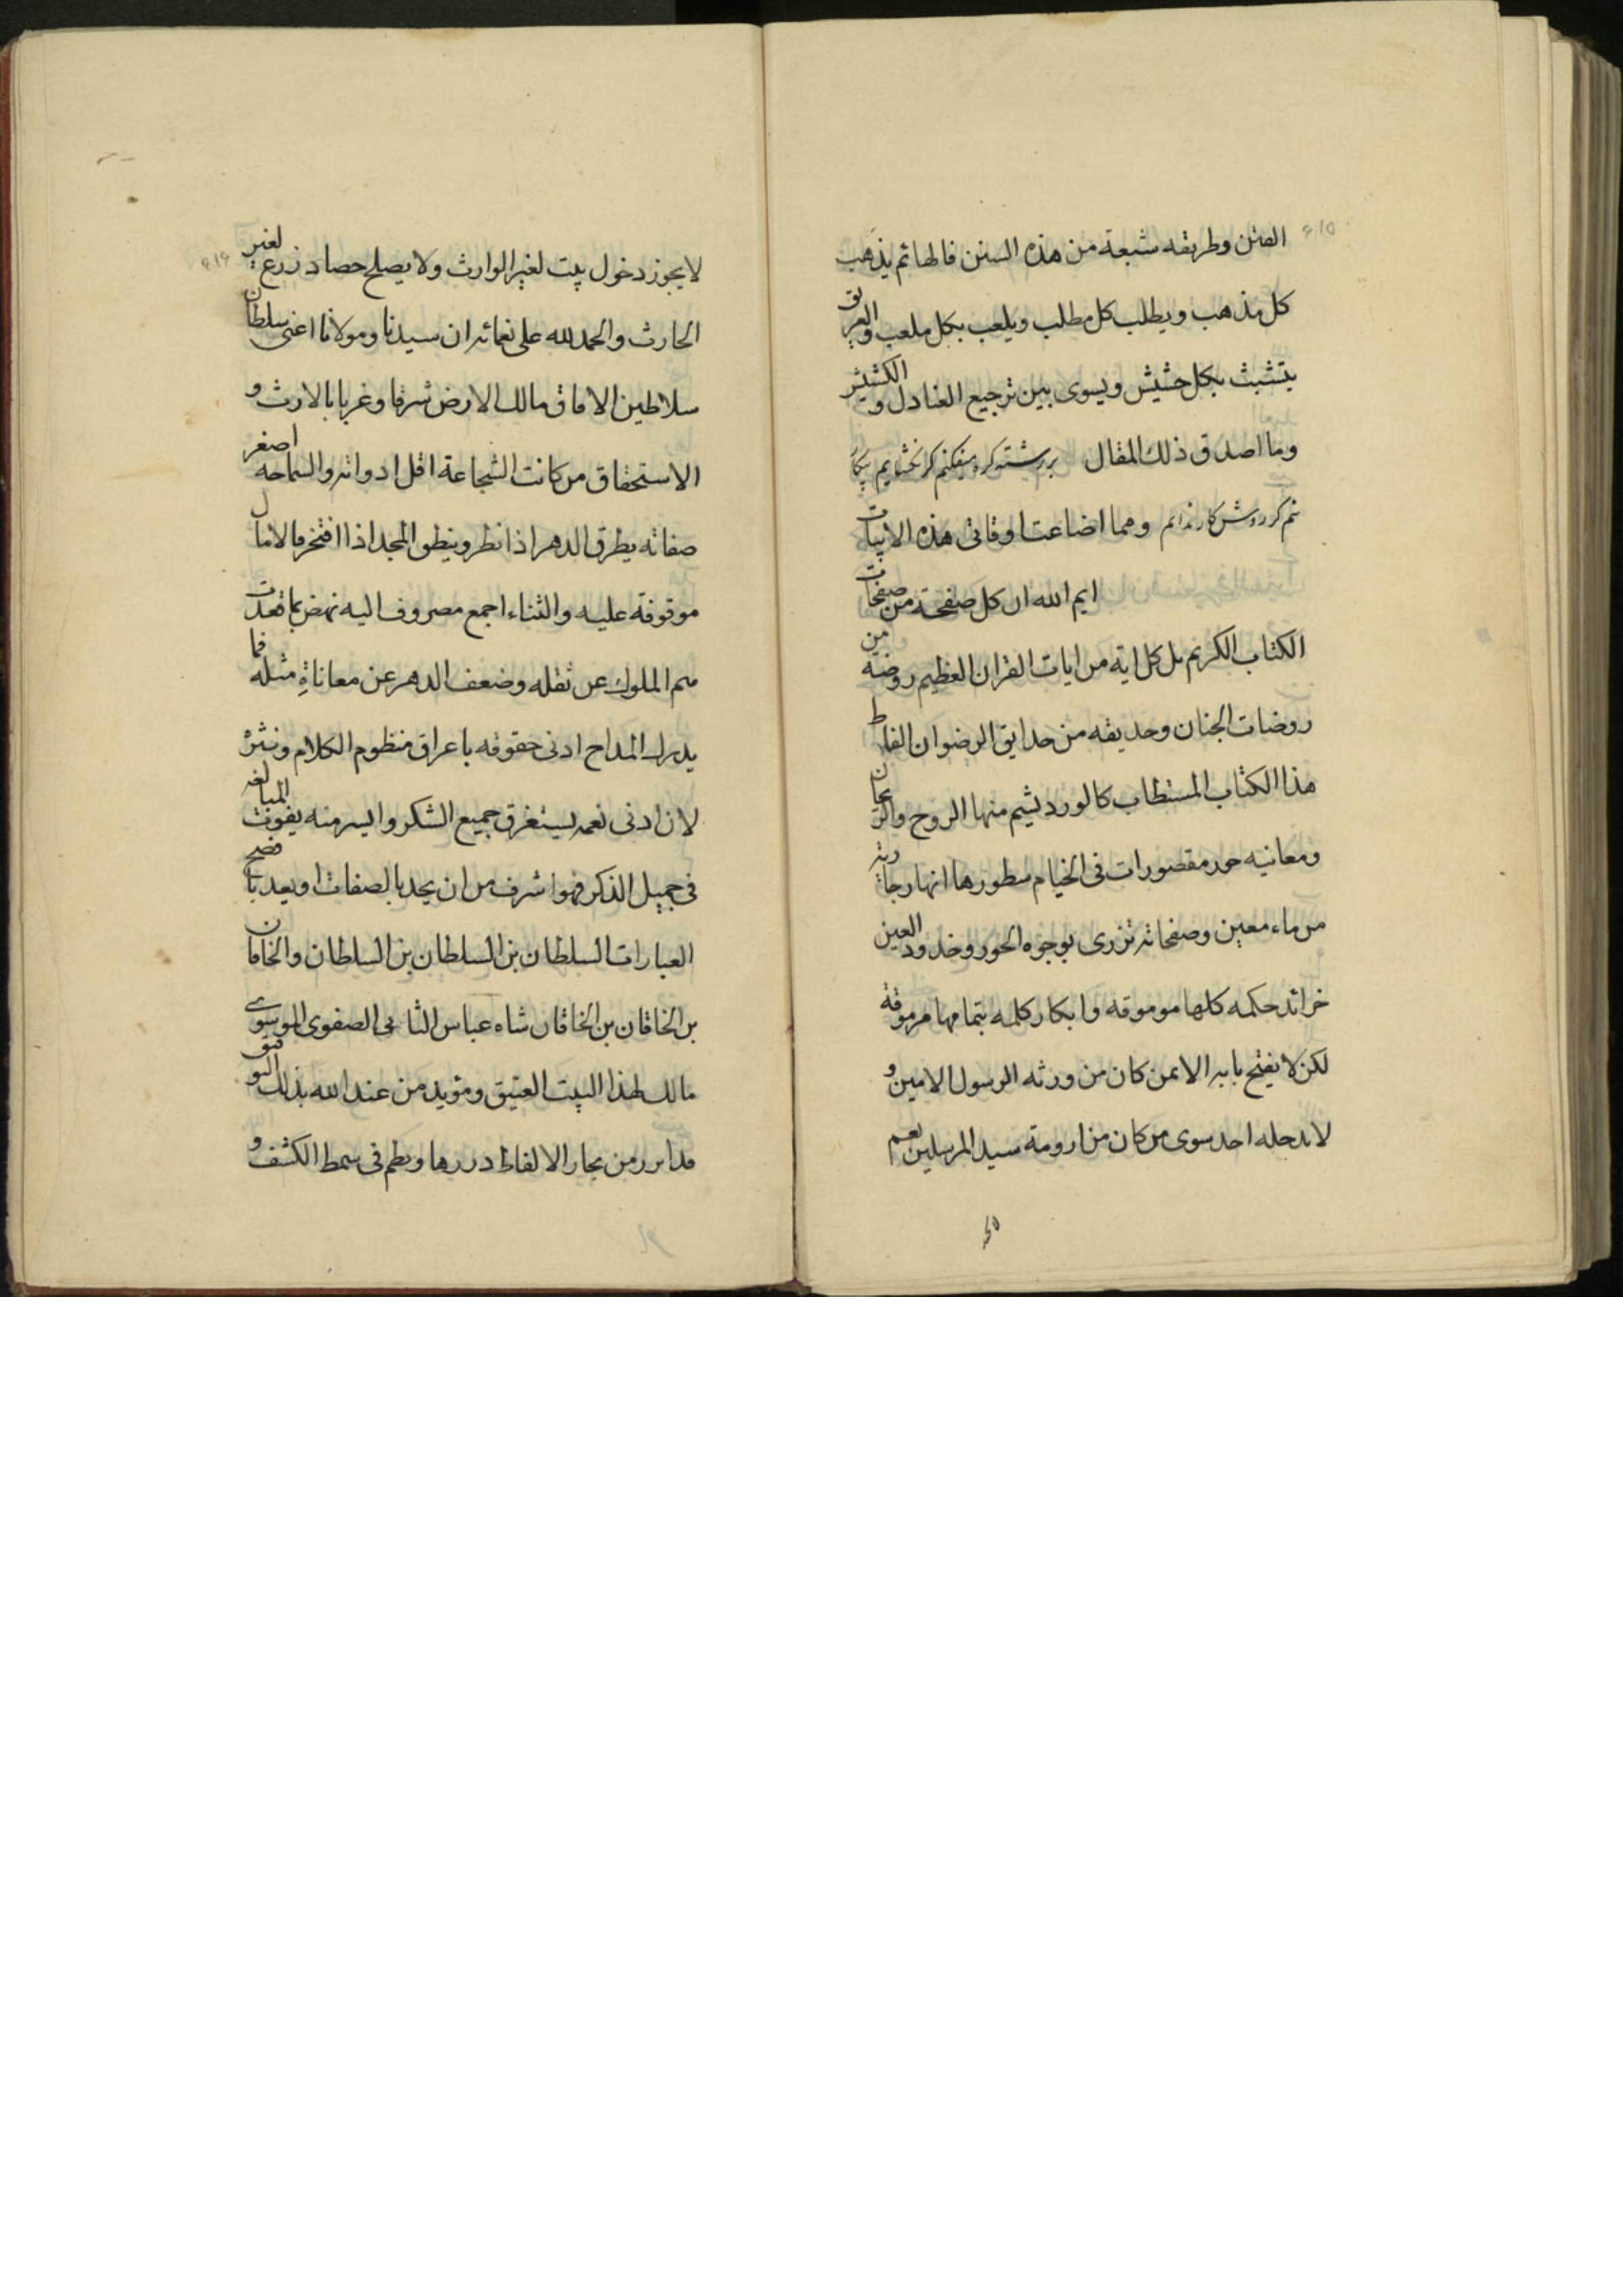 الفتن وطريقه شبعة من هذه السنن فالهاثم يذهب
كل مذهب ويطلب كل مطلب ويلعب بكل ملعب والغريق
يتشبث بكل حشيش ويسوى بين ترجيع العنادل والكشيش
وما اصدق ذلك المقال
ومما اضاعت اوقاتى هذه الابيات
ايم الله ان كل صفحة من صفحات
الكتاب الكريم بل كل اية من ايات القران العظيم روضة من
روضات الجنان وحديقه من حدايق الرضوان الفاظ
هذا الكتاب المستطاب كالورد يشيم منها الروح والريحان
ومعانيه حور مقصورات فى الخيام سطورها انهار جارية
من ماء معين وصفحاته تزرى بوجوه الحور وخدود العين
خرائد حكمه كلها موموقه وابكار كلمه بتمامها مرموقة
لكن لا يفتح بابه الا لمن كان من ورثه الرسول الامين و
لا يدخله احد سوى من كان من ارومة سيد المرسلين نعم
لا يجوز دخول بيت لغير الوارث ولا يصلح حصاد زرع لغير
الحارث والحمد لله على نعمائه ان سيدنا ومولانا اعنى سلطان
سلاطين الافاق مالك الارض شرقا وغربا بالارث و
الاستحقاق من كانت الشجاعة اقل ادواته والسماحه اصغر
صفاته يطرق الدهر اذا نظر وينطق المجد اذا افتخر فالامال
موقوفة عليه والثناء اجمع مصروف اليه نهض بما قعدت
همم الملوك عن ثقله وضعف الدهر عن معاناة مثله فما
يدرك المداح ادنى حقوقه باعراق منظوم الكلام ونثره
لان ادنى نعمه يستغرق جميع الشكر وايسر منه يفوت المبالغه
فى جميل الذكر فهو اشرف من ان يحد بالصفات او يعد بافصح
العبارات السلطان بن السلطان بن السلطان والخاقان
بن الخاقان بن الخاقان شاه عباس الثانى الصفوى الموسوى
مالك لهذا البيت العتيق ومؤيد من عند الله بذلك التوفيق
فدابرز من بحار الالفاظ دررها ونظم فى سمط الكشف و